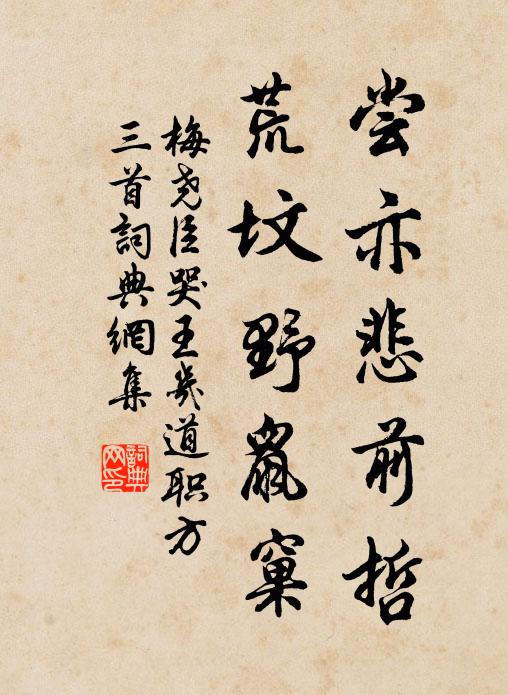 尝亦悲前哲
荒坟野鼠窠
梅尧臣哭王幾道职方
三首詞典網集
詞典
网印